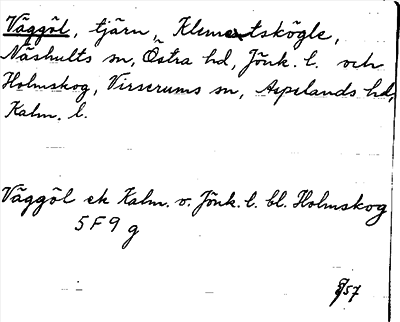 Väggöl, tjärn, Klementskögle,
Näshults sn, Östra hd, Jönk. l. och
Holmskog, Virserums sn, Aspelands hd,
Kalm. l.
Väggöl ek Kalm. o. Jönk. l. bl. Holmskog
5F9g
57